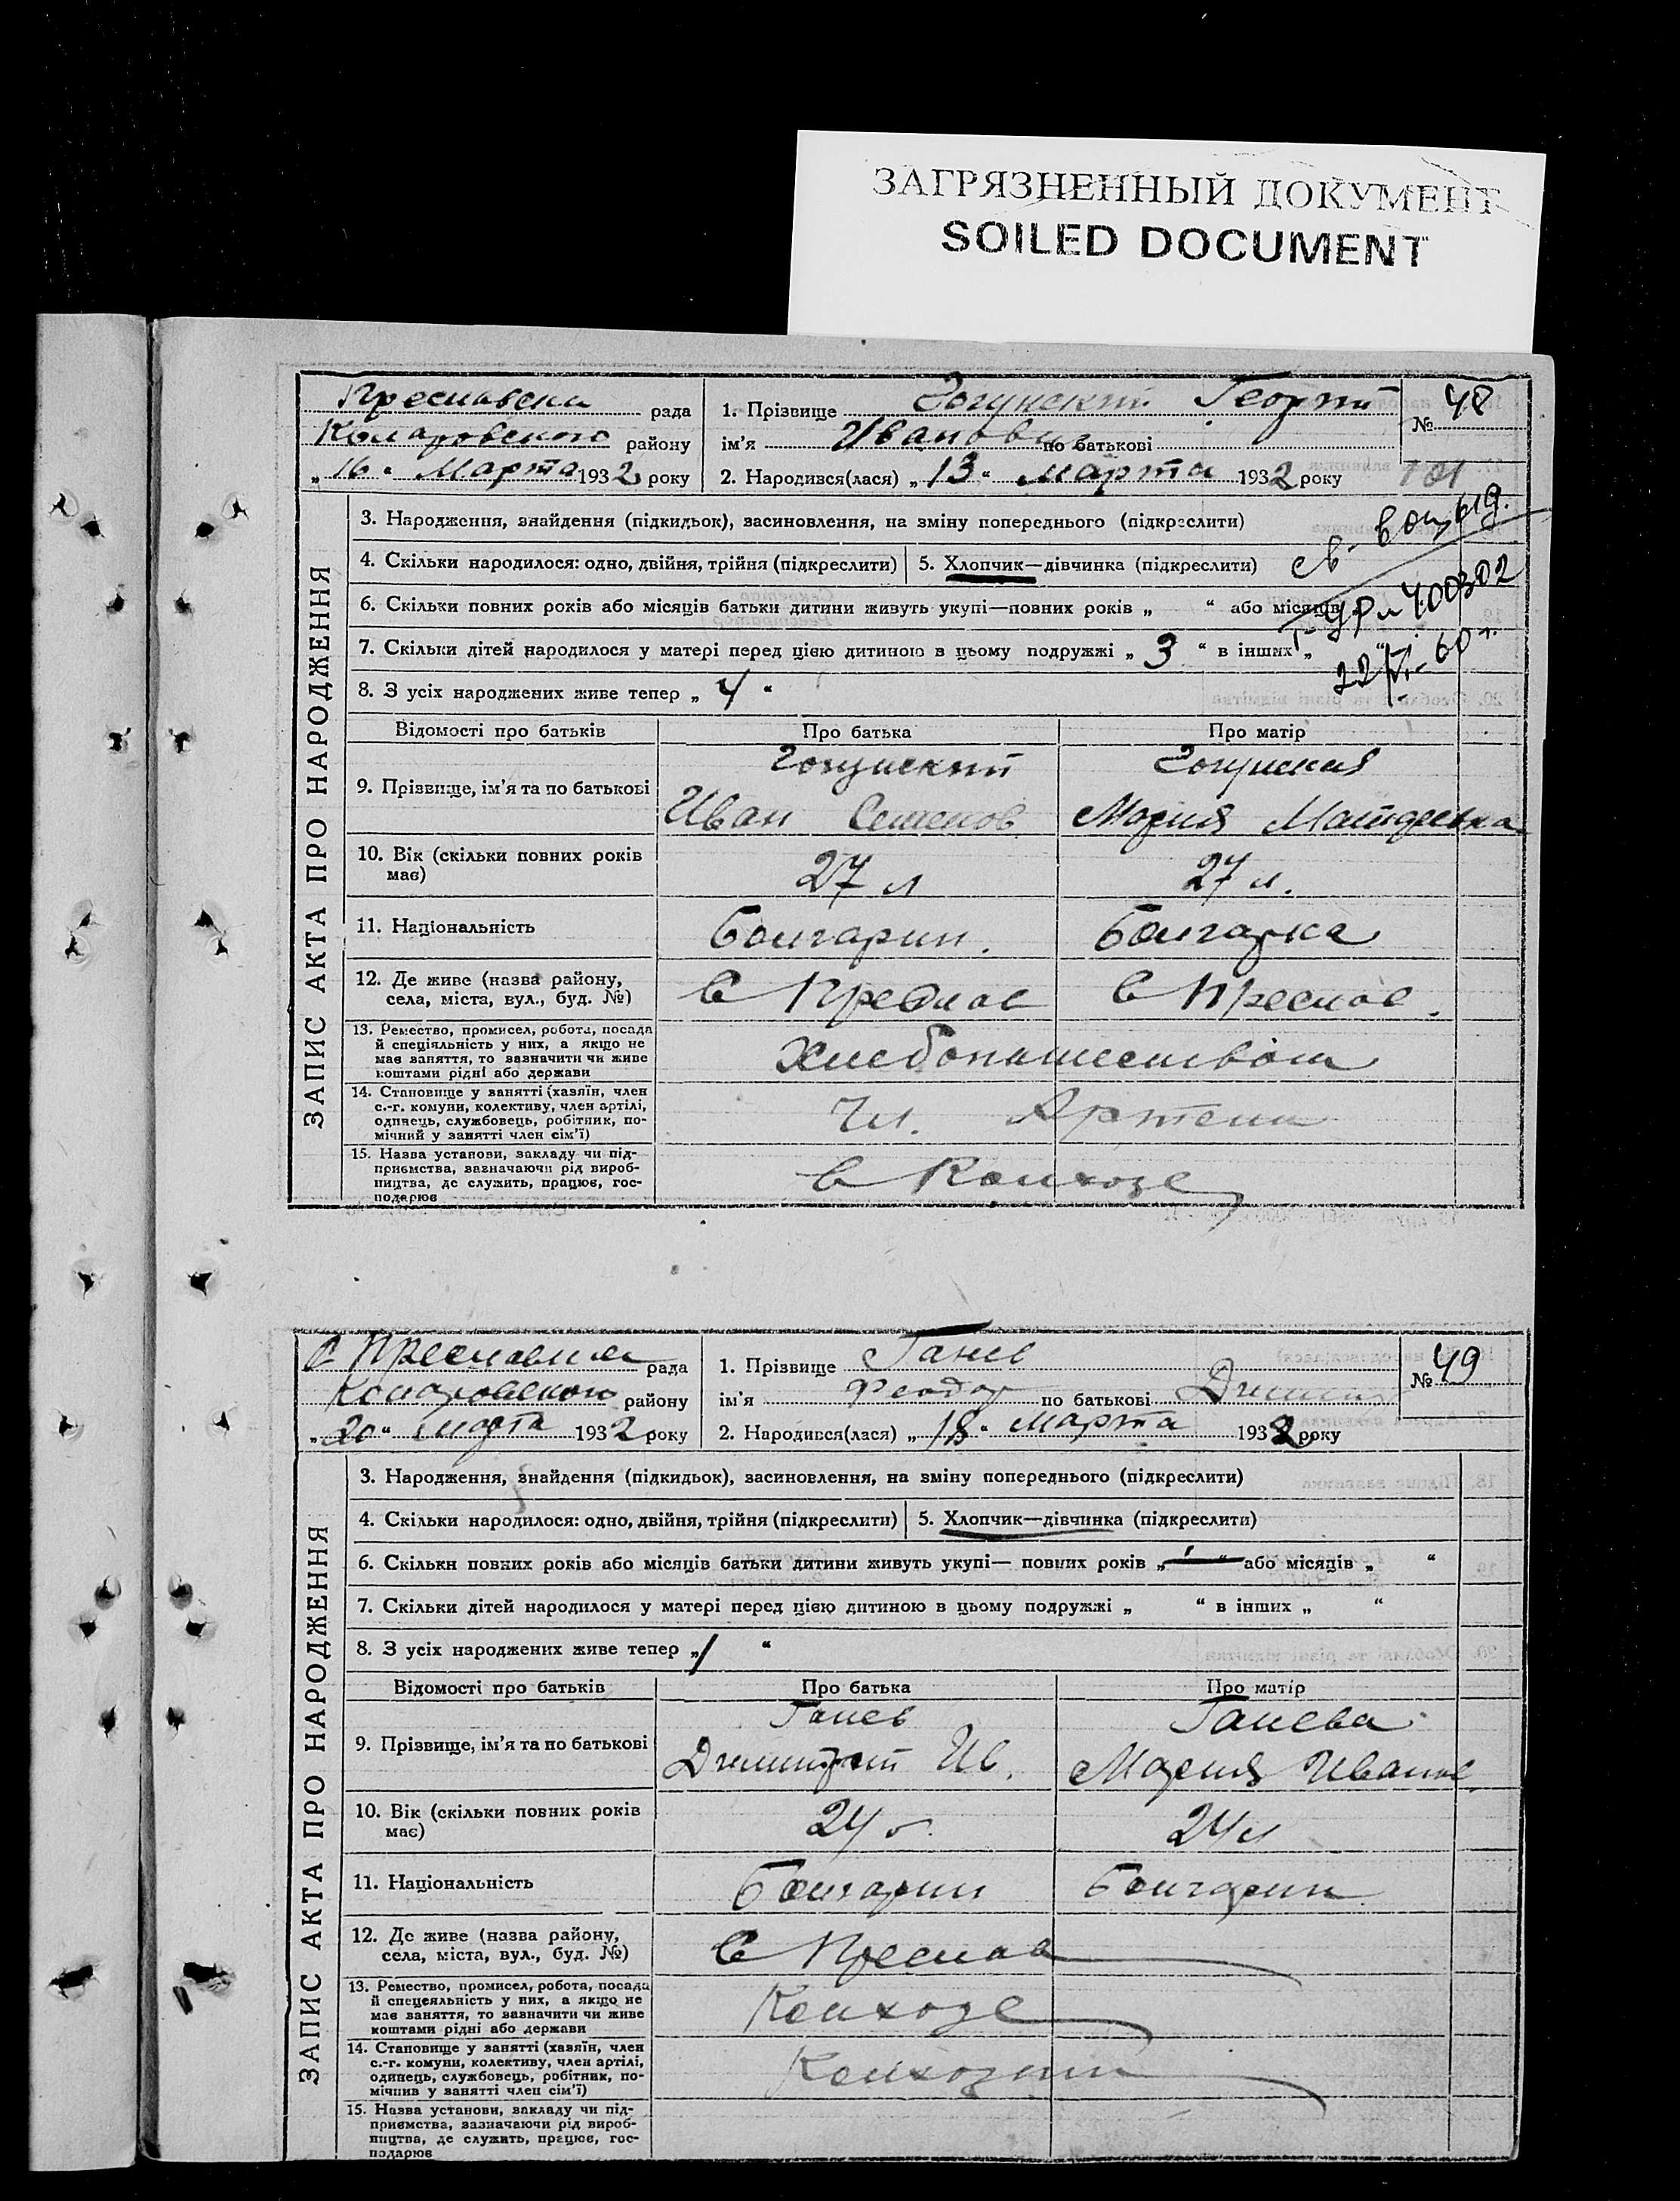 ЗАГРЯЗНЕННЫЙ ДОКУМЕНТ
SOILED DOCUMENT
ЗАПИС АКТА ПРО НАРОДЖЕННЯ
Преславска рада
Коларовского району
„16“ Марта 1932 року
1. Прізвище Гогунский Георгий
ім'я Иванович по батькові
2. Народився(лася) „13“ марта 1932 року
№ 48
101
3. Народження, знайдення (підкидьок), засиновлення, на зміну попереднього (підкреслити)
4. Скільки народилося: одно, двійня, трійня (підкреслити)
5. Хлопчик—дівчинка (підкреслити)
6. Скільки повних років або місяців батьки дитини живуть укупі—повних років „ “ або місяців
7. Скільки дітей народилося у матері перед цією дитиною в цьому подружжі „ 3 “ в інших „ “
8. З усіх народжених живе тепер „ 4 “
400302
Відомості про батьків
Про батька
Про матір
9. Прізвище, ім'я та по батькові
Гогунский
Иван Семенов
Гогунская
Мария Матфеевна
10. Вік (скільки повних років має)
27 л
27 л.
11. Національність
Болгарин.
Болгарка
12. Де живе (назва району,
села, міста, вул., буд. №)
С Преслав
С Преслав.
13. Ремество, промисел, робота, посада
й спеціяльність у них, а якщо не
має заняття, то зазначити чи живе
коштами рідні або держави
Хлебопашеством
14. Становище у занятті (хазяїн, член
с.-г. комуни, колективу, член артілі,
одинець, службовець, робітник, по-
мічний у занятті член сім'ї)
Чл. Артели
15. Назва установи, закладу чи під-
приємства, зазначаючи рід вироб-
ництва, де служить, працює, гос-
подарює
в Колхозе
ЗАПИС АКТА ПРО НАРОДЖЕННЯ
рада
Коларовского району
„20“ марта 1932 року
1. Прізвище Ганев
ім'я Феодор по батькові
2. Народився(лася) „18“ марта 1932 року
№ 49
3. Народження, знайдення (підкидьок), засиновлення, на зміну попереднього (підкреслити)
4. Скільки народилося: одно, двійня, трійня (підкреслити)
5. Хлопчик—дівчинка (підкреслити)
6. Скільки повних років або місяців батьки дитини живуть укупі— повних років „ “ або місяців „ “
7. Скільки дітей народилося у матері перед цією дитиною в цьому подружжі „ “ в інших „ “
8. З усіх народжених живе тепер „ 1 “
Відомості про батьків
Про батька
Про матір
9. Прізвище, ім'я та по батькові
Ганев
Димитрий Ив.
Ганева
Мария Иванов
10. Вік (скільки повних років
має)
24
24 л
11. Національність
Болгарин
Болгарин
12. Де живе (назва району,
села, міста, вул., буд. №)
С Преслав
13. Ремество, промисел, робота, посада
й спецеяльність у них, а якщо не
має заняття, то зазначити чи живе
коштами рідні або держави
Колхозе
14. Становище у занятті (хазяїн, член
с.-г. комуни, колективу, член артілі,
одинець, службовець, робітник, по-
мічнив у занятті член сім'ї)
15. Назва установи, закладу чи під-
приємства, зазначаючи рід вироб-
ництва, де служить, працює, гос-
подарює